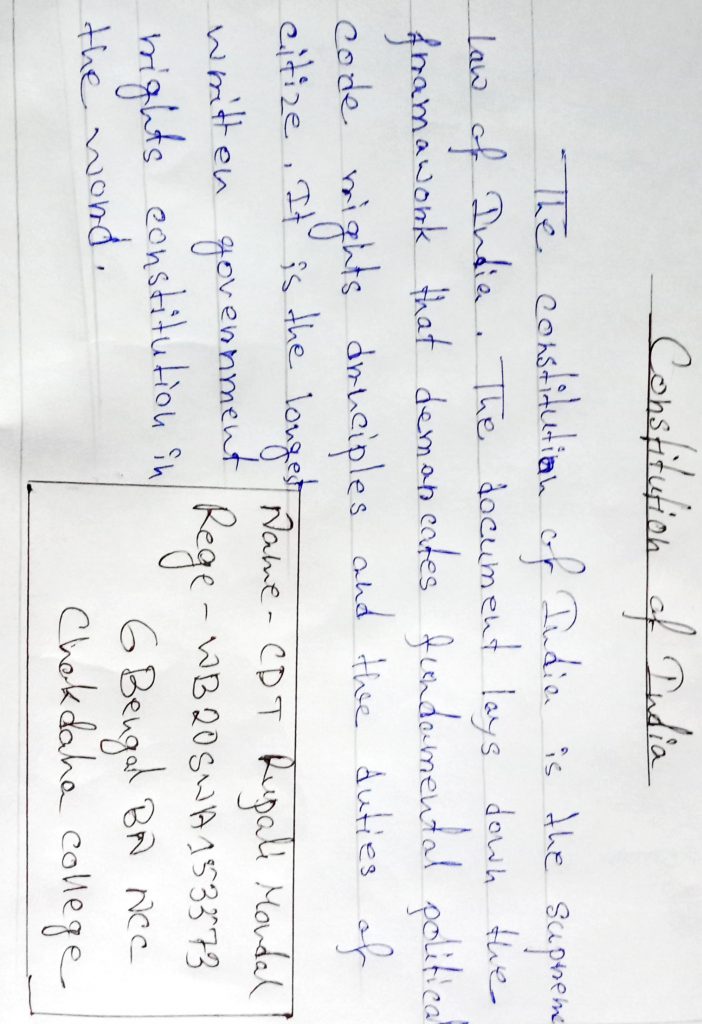 Constitution of India
The constitution of India is the supreme
law of India. The document lays down the
framawork that demarcates fundamental political
code rights druciples and thee duties of
citize. It is the longest
written government
rights constitution in
the word.
Name - CDT Rupali Mondal
Rege - WB20SWA153573
6 Bengal BN NCC
Chakdaha college